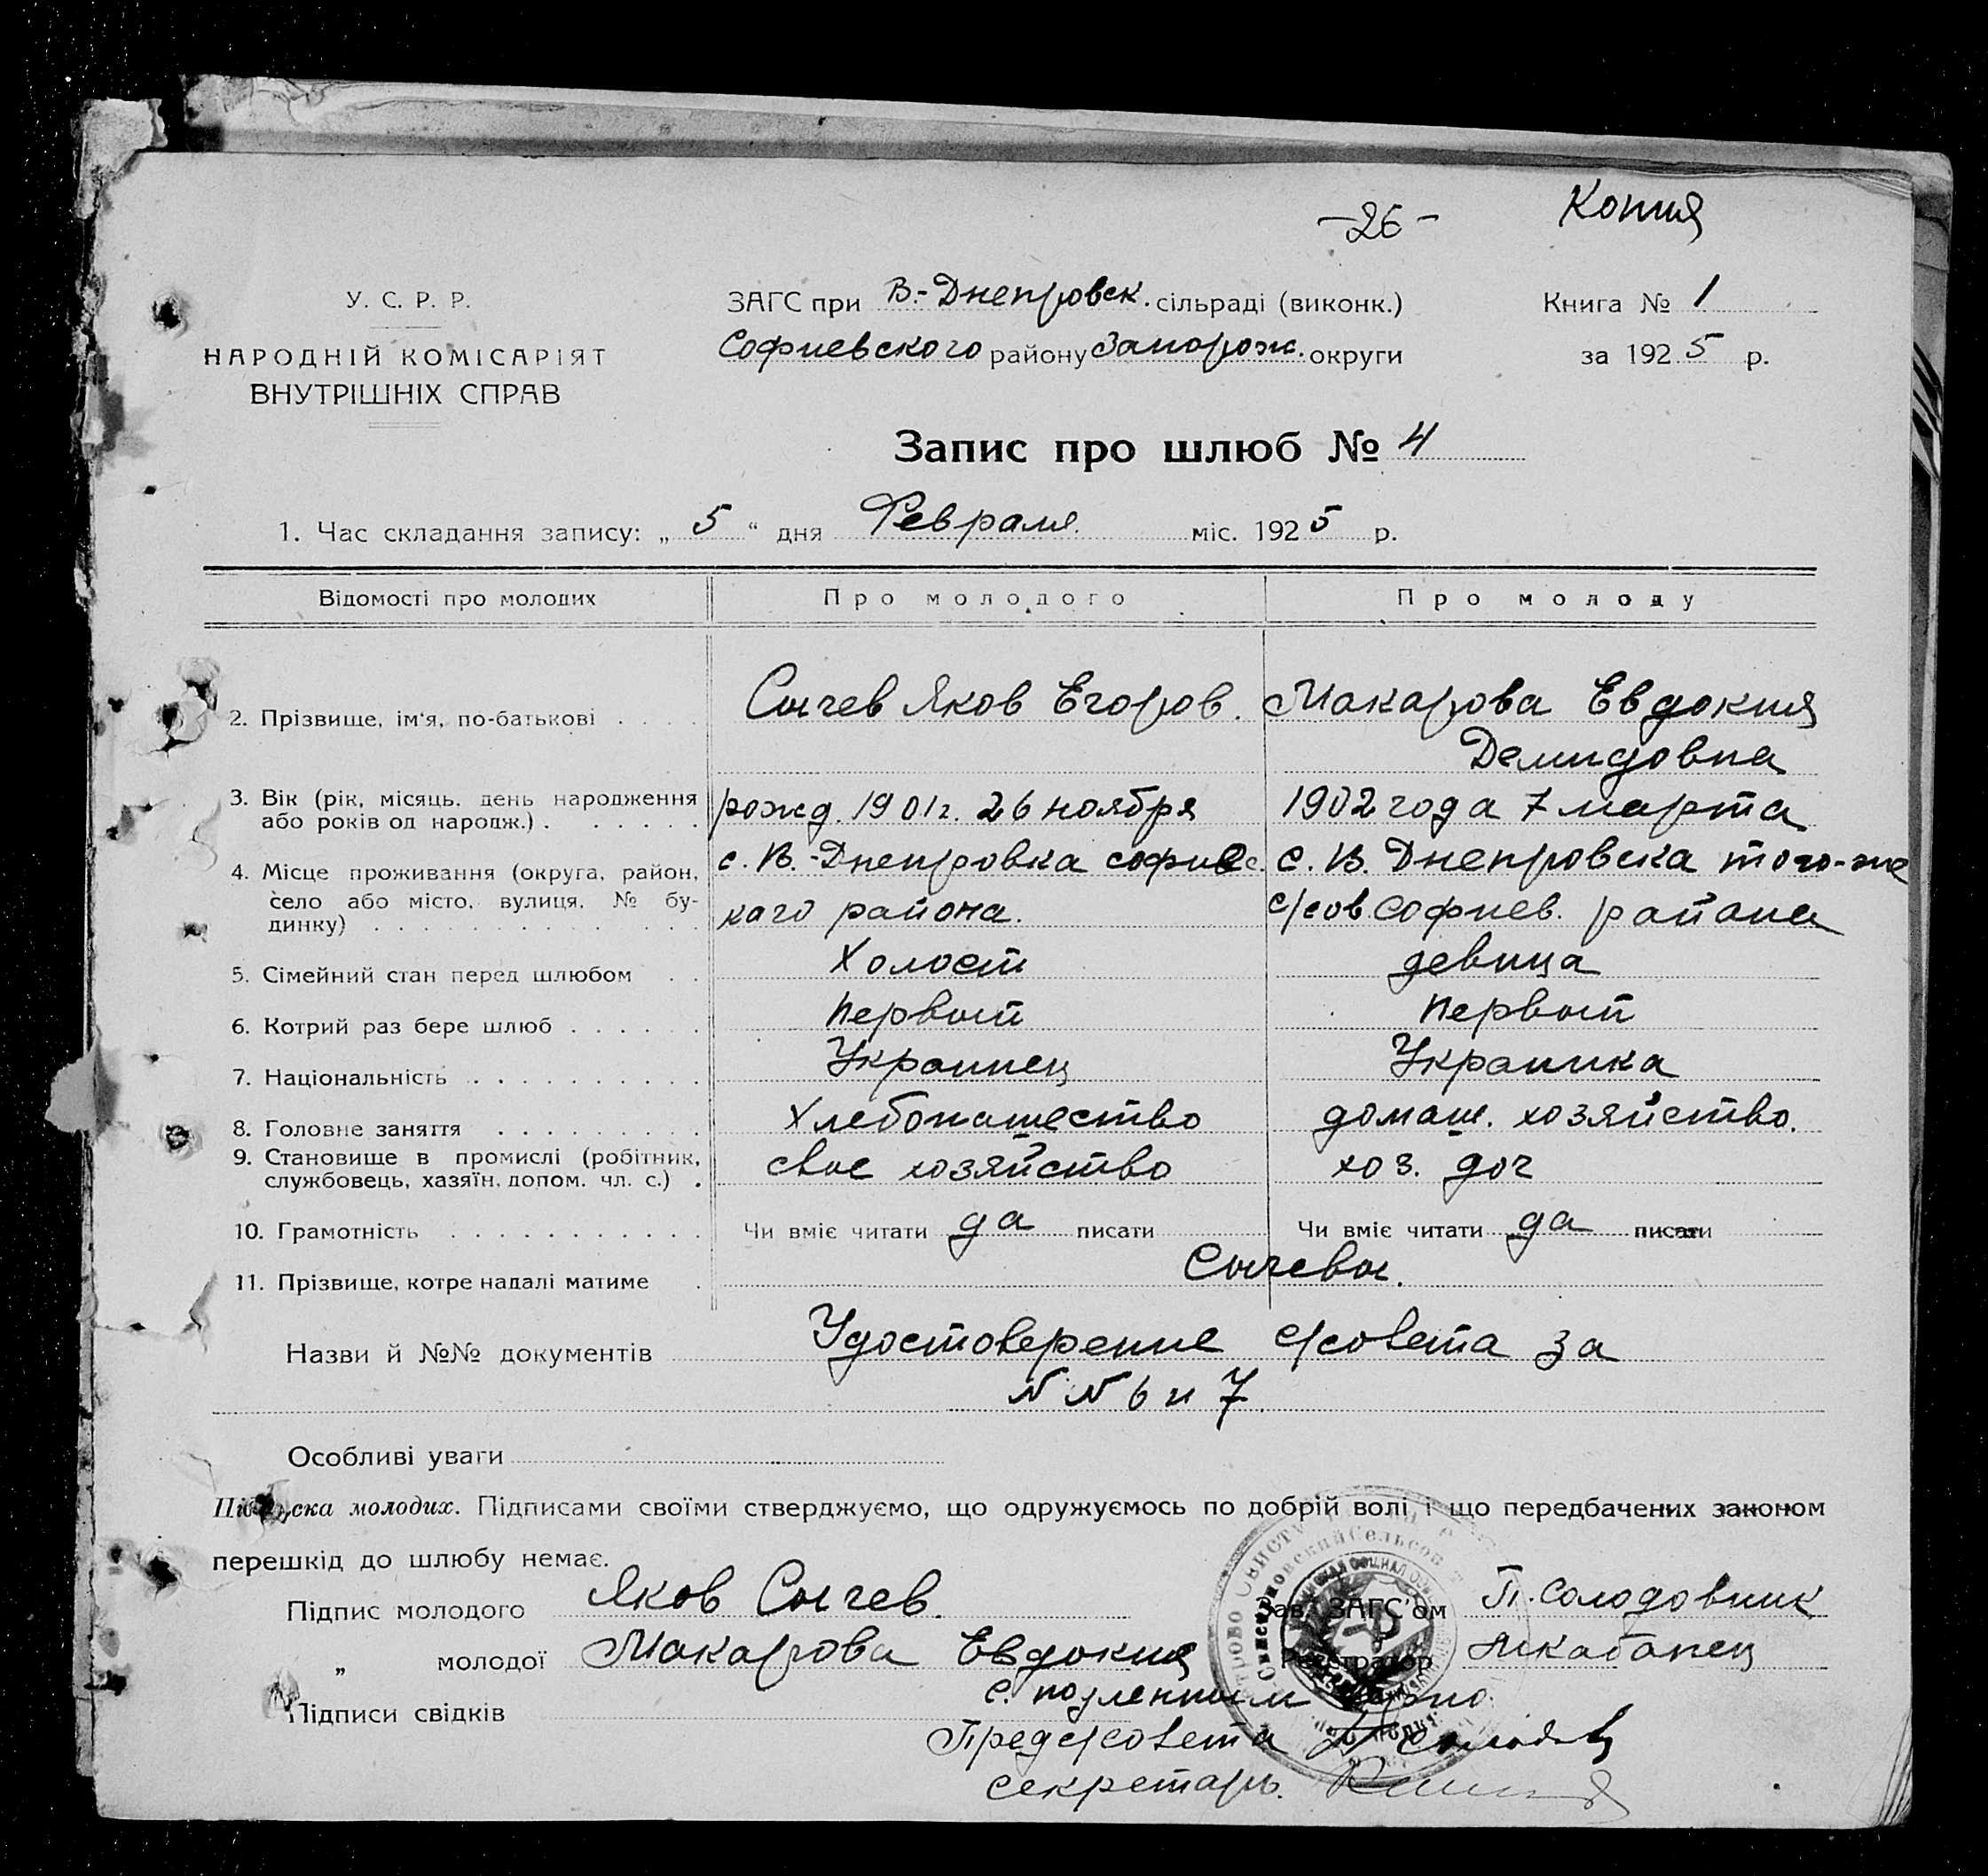 -26- Копия
У. С. Р. Р.
НАРОДНІЙ КОМІСАРІЯТ
ВНУТРІШНІХ СПРАВ
ЗАГС при В.-Днепровск. сільраді (виконк.)
Софиевского району Запорож. округи
Книга № 1
за 1925 р.
Запис про шлюб № 4
1. Час складання запису: „ 5 “ дня Февраля. міс. 1925 р.
Відомості про молодих Про молодого Про молоду
2. Прізвище, ім'я, по-батькові . . . . Сычев Яков Егоров. Макарова Евдокия
Демидовна
3. Вік (рік, місяць, день народження
або років од народж.) . . . . . . рожд. 1901г. 26 ноября 1902 года 7 марта
4. Місце проживання (округа, район,
село або місто, вулиця, № бу-
динку) . . . . . . . . . . . . .
с. В.-Днепровка софиевс.
каго района.
с. В. Днепровска того-же
с/сов. Софиев. района
5. Сімейний стан перед шлюбом . . Холост девица
6. Котрий раз бере шлюб . . . . . Первый Первый
7. Національність . . . . . . . . . . Украинец Украинка
8. Головне заняття . . . . . . . . . Хлебопашество домаш. хозяйство.
9. Становище в промислі (робітник,
службовець, хазяїн, допом. чл. с.) . свое хозяйство хоз. доч
10. Грамотність . . . . . . . . . . . Чи вміє читати да писати Чи вміє читати да писати
11. Прізвище, котре надалі матиме . Сычевы.
Назви й №№ документів Удостоверение с/совета за
№ № 6 и 7.
Особливі уваги
Підписка молодих. Підписами своїми стверджуємо, що одружуємось по добрій волі і що передбачених законом
перешкід до шлюбу немає.
Підпис молодого Яков Сычев.
„ молодої Макарова Евдокия
Підписи свідків
Зав. ЗАГС'ом П. Солодовник
Реєстратор
С. подленным верно.
Пред с/совета
секретарь.